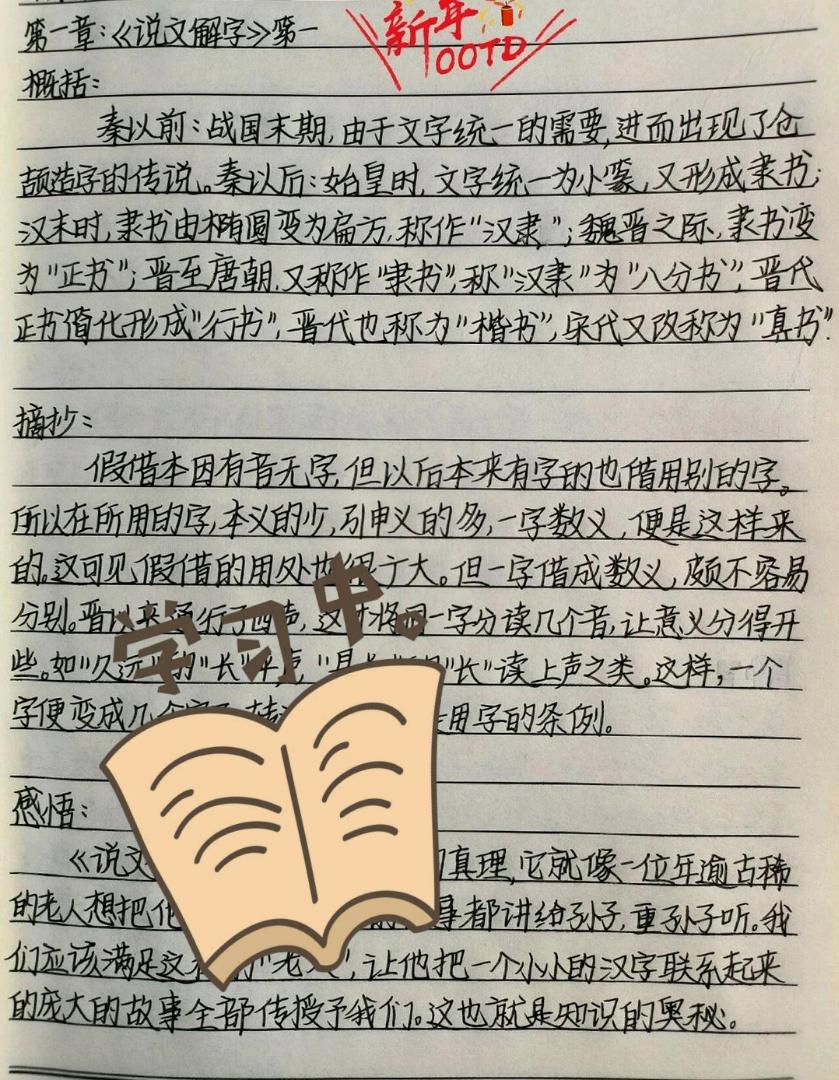 新年
OOTD
第一章:《说文解字》第一
概括:
秦以前:战国末期,由于文字统一的需要,进而出现了仓
颉造字的传说。秦以后:始皇时,文字统一为小篆,又形成隶书;
汉末时,隶书由椭圆变为扁方,称作"汉隶";魏晋之际,隶书变
为"正书";晋至唐朝,又称作"隶书",称"汉隶"为"八分书",晋代
正书简化形成"行书",晋代也称为"楷书",宋代又改称为"真书".
摘抄:
假借本因有音无字,但以后本来有字的也借用别的字。
所以在所用的字,本义的少,引申义的多,一字数义,便是这样来
的。这可见假借的用处也很广大。但一字借成数义,颇不容易
分别。晋以来通行了四声,这才将同一字分读几个音,让意义分得开
些。如"久远"的"长"平声,"的"长"读上声之类。这样,一个
字便变成几个字了。用字的条例。
学习中。
感悟:
《说文真理,它就像一位年逾古稀
的老人想把他都讲给孙子,重孙子听。我
们应该满足这"老,让他把一个小小的汉字联系起来
的庞大的故事全部传授予我们。这也就是知识的奥秘。